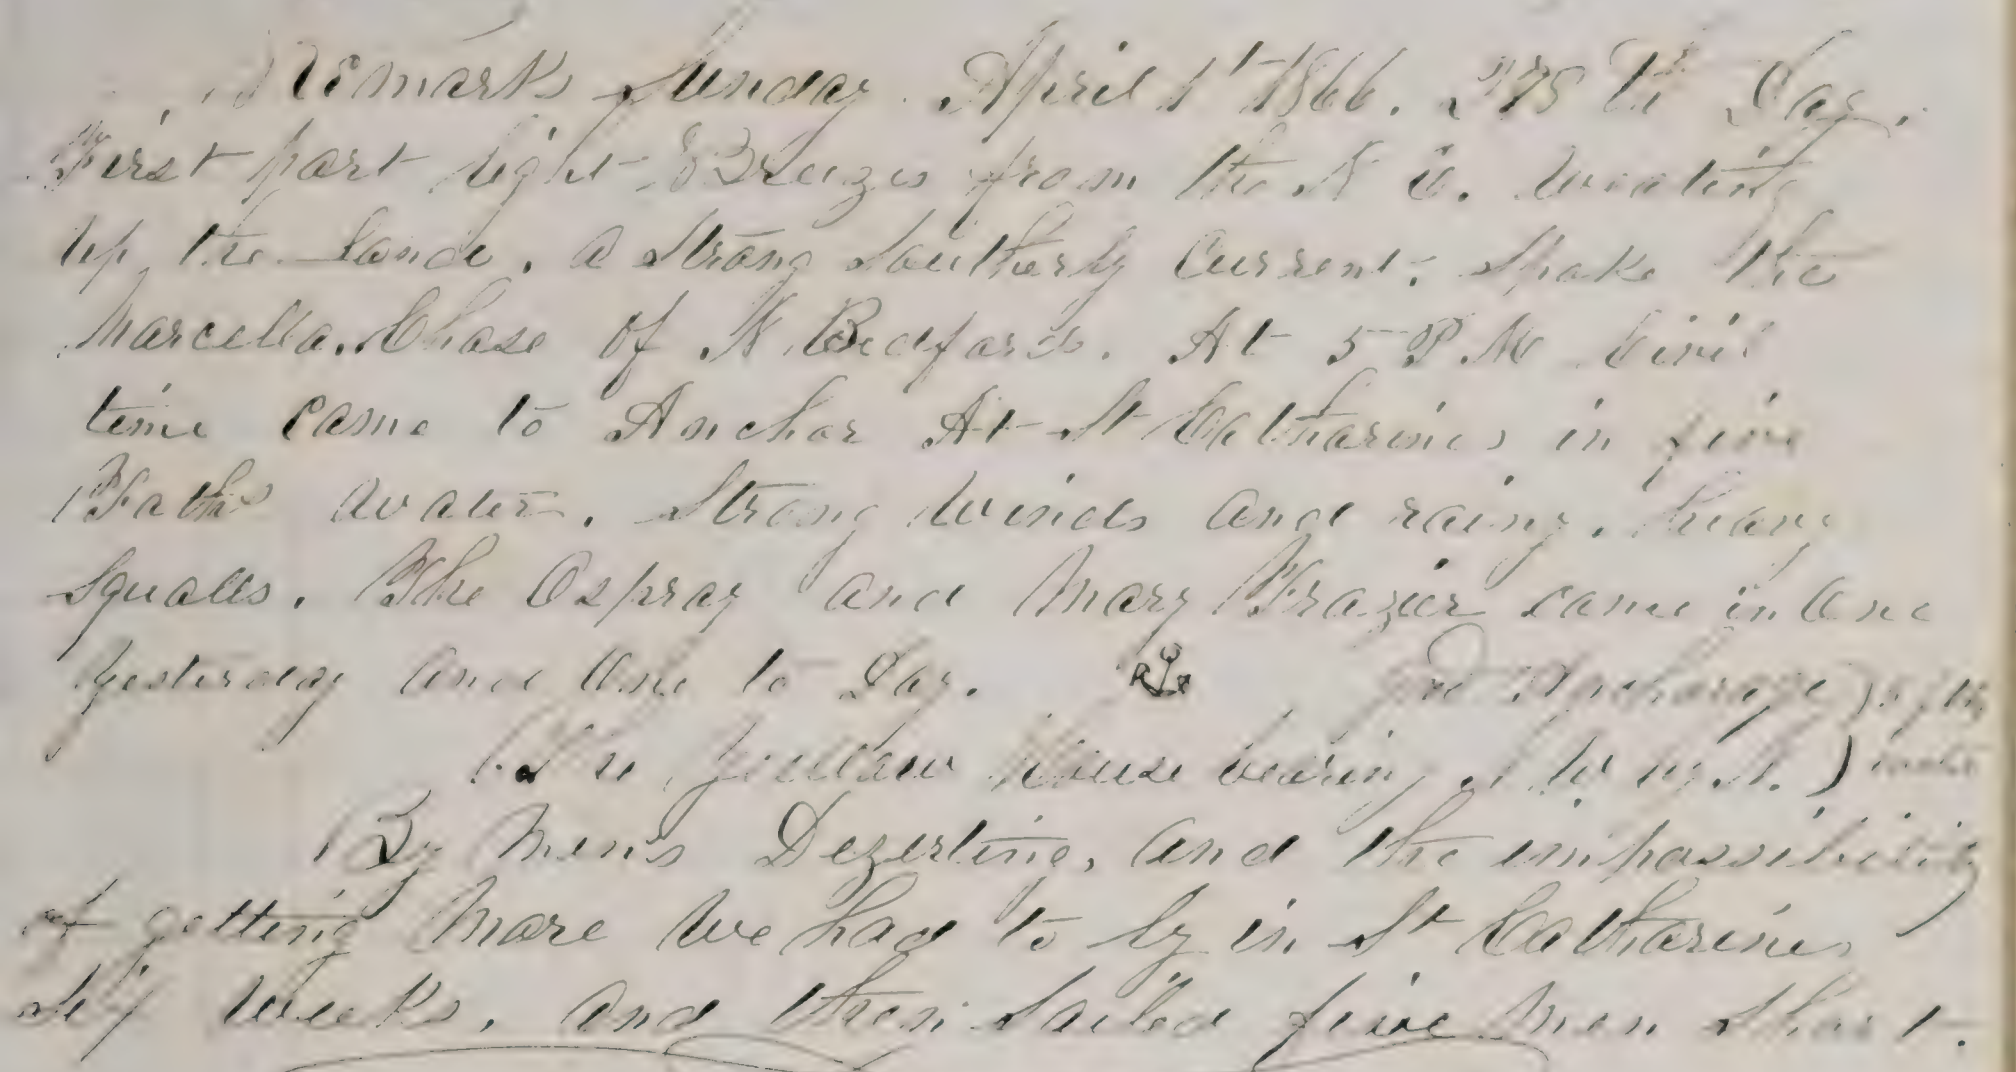 Remarks Sunday April 1st 1866. 278 th Day.
First part light Breezes from the N E. beating
up the Land. A Strong Southerly Current. Spoke the
Marcella. Chase of N Bedford. At 5 P.M Civil
time came to Anchor At St Catharines in five
Faths water. Strong Winds and rainy. heavy
Squalls. The Osprey and Mary Frazier came in One
yesterday and One to Day. Good Anchorage
the yellow House bearing
By Men's Dezerting, and the impossibility
of getting More We had to ly in St Catharines
six Weeks. And then Sailed five Men Short.